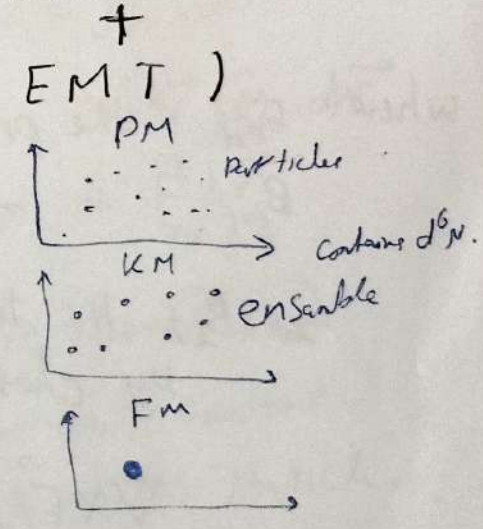 +
EMT )
PM
Particles
contains d⁶N.
KM
ensamble
FM